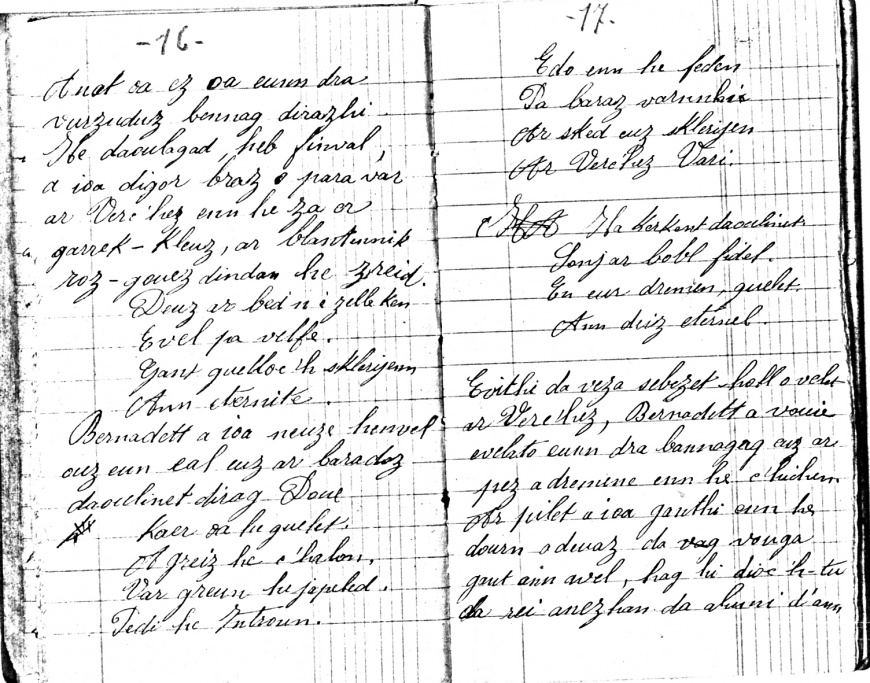 -16-
Anat oa ez oa eunn dra
vurzuduz bennag dirazhi
He daoulagad, heb finval,
a ioa digor braz o para var
ar Verc'hez enn he za er
garrek-kleuz, ar blantennik
roz-gouez dindan he zreid.
Deuz ar bed n'i zelle ken
Evel pa velfe.
Gant guelloc'h sklerijenn
Ann eternite.
Bernadett a ioa neuze henvel
ouz eun eal euz ar baradoz
daoulinet dirag Doue
Kaer oa he guelet.
A greiz he c'halon,
Var greun he japeled.
Pedi he Introun.
-17.
Edo enn he feden
Pa baraz varnhi
Ar sked euz sklerijen
Ar Verc'hez Vari.
Ha kerkent daoulinet
Sonj ar bobl fidel.
En eur dremen, guelet.
Ann deiz eternel.
Evithi da veza sebezet-holl o velet
ar Verc'hez, Bernadett a vouie
evelato eunn dra bannagag euz ar
pez a dremene enn he c'hichen
Ar pilet a ioa ganthi enn he
dourn o devoaz da vouga
gant ann avel, hag hi dioc'h-tu
da rei anezhan da alumi d'ann